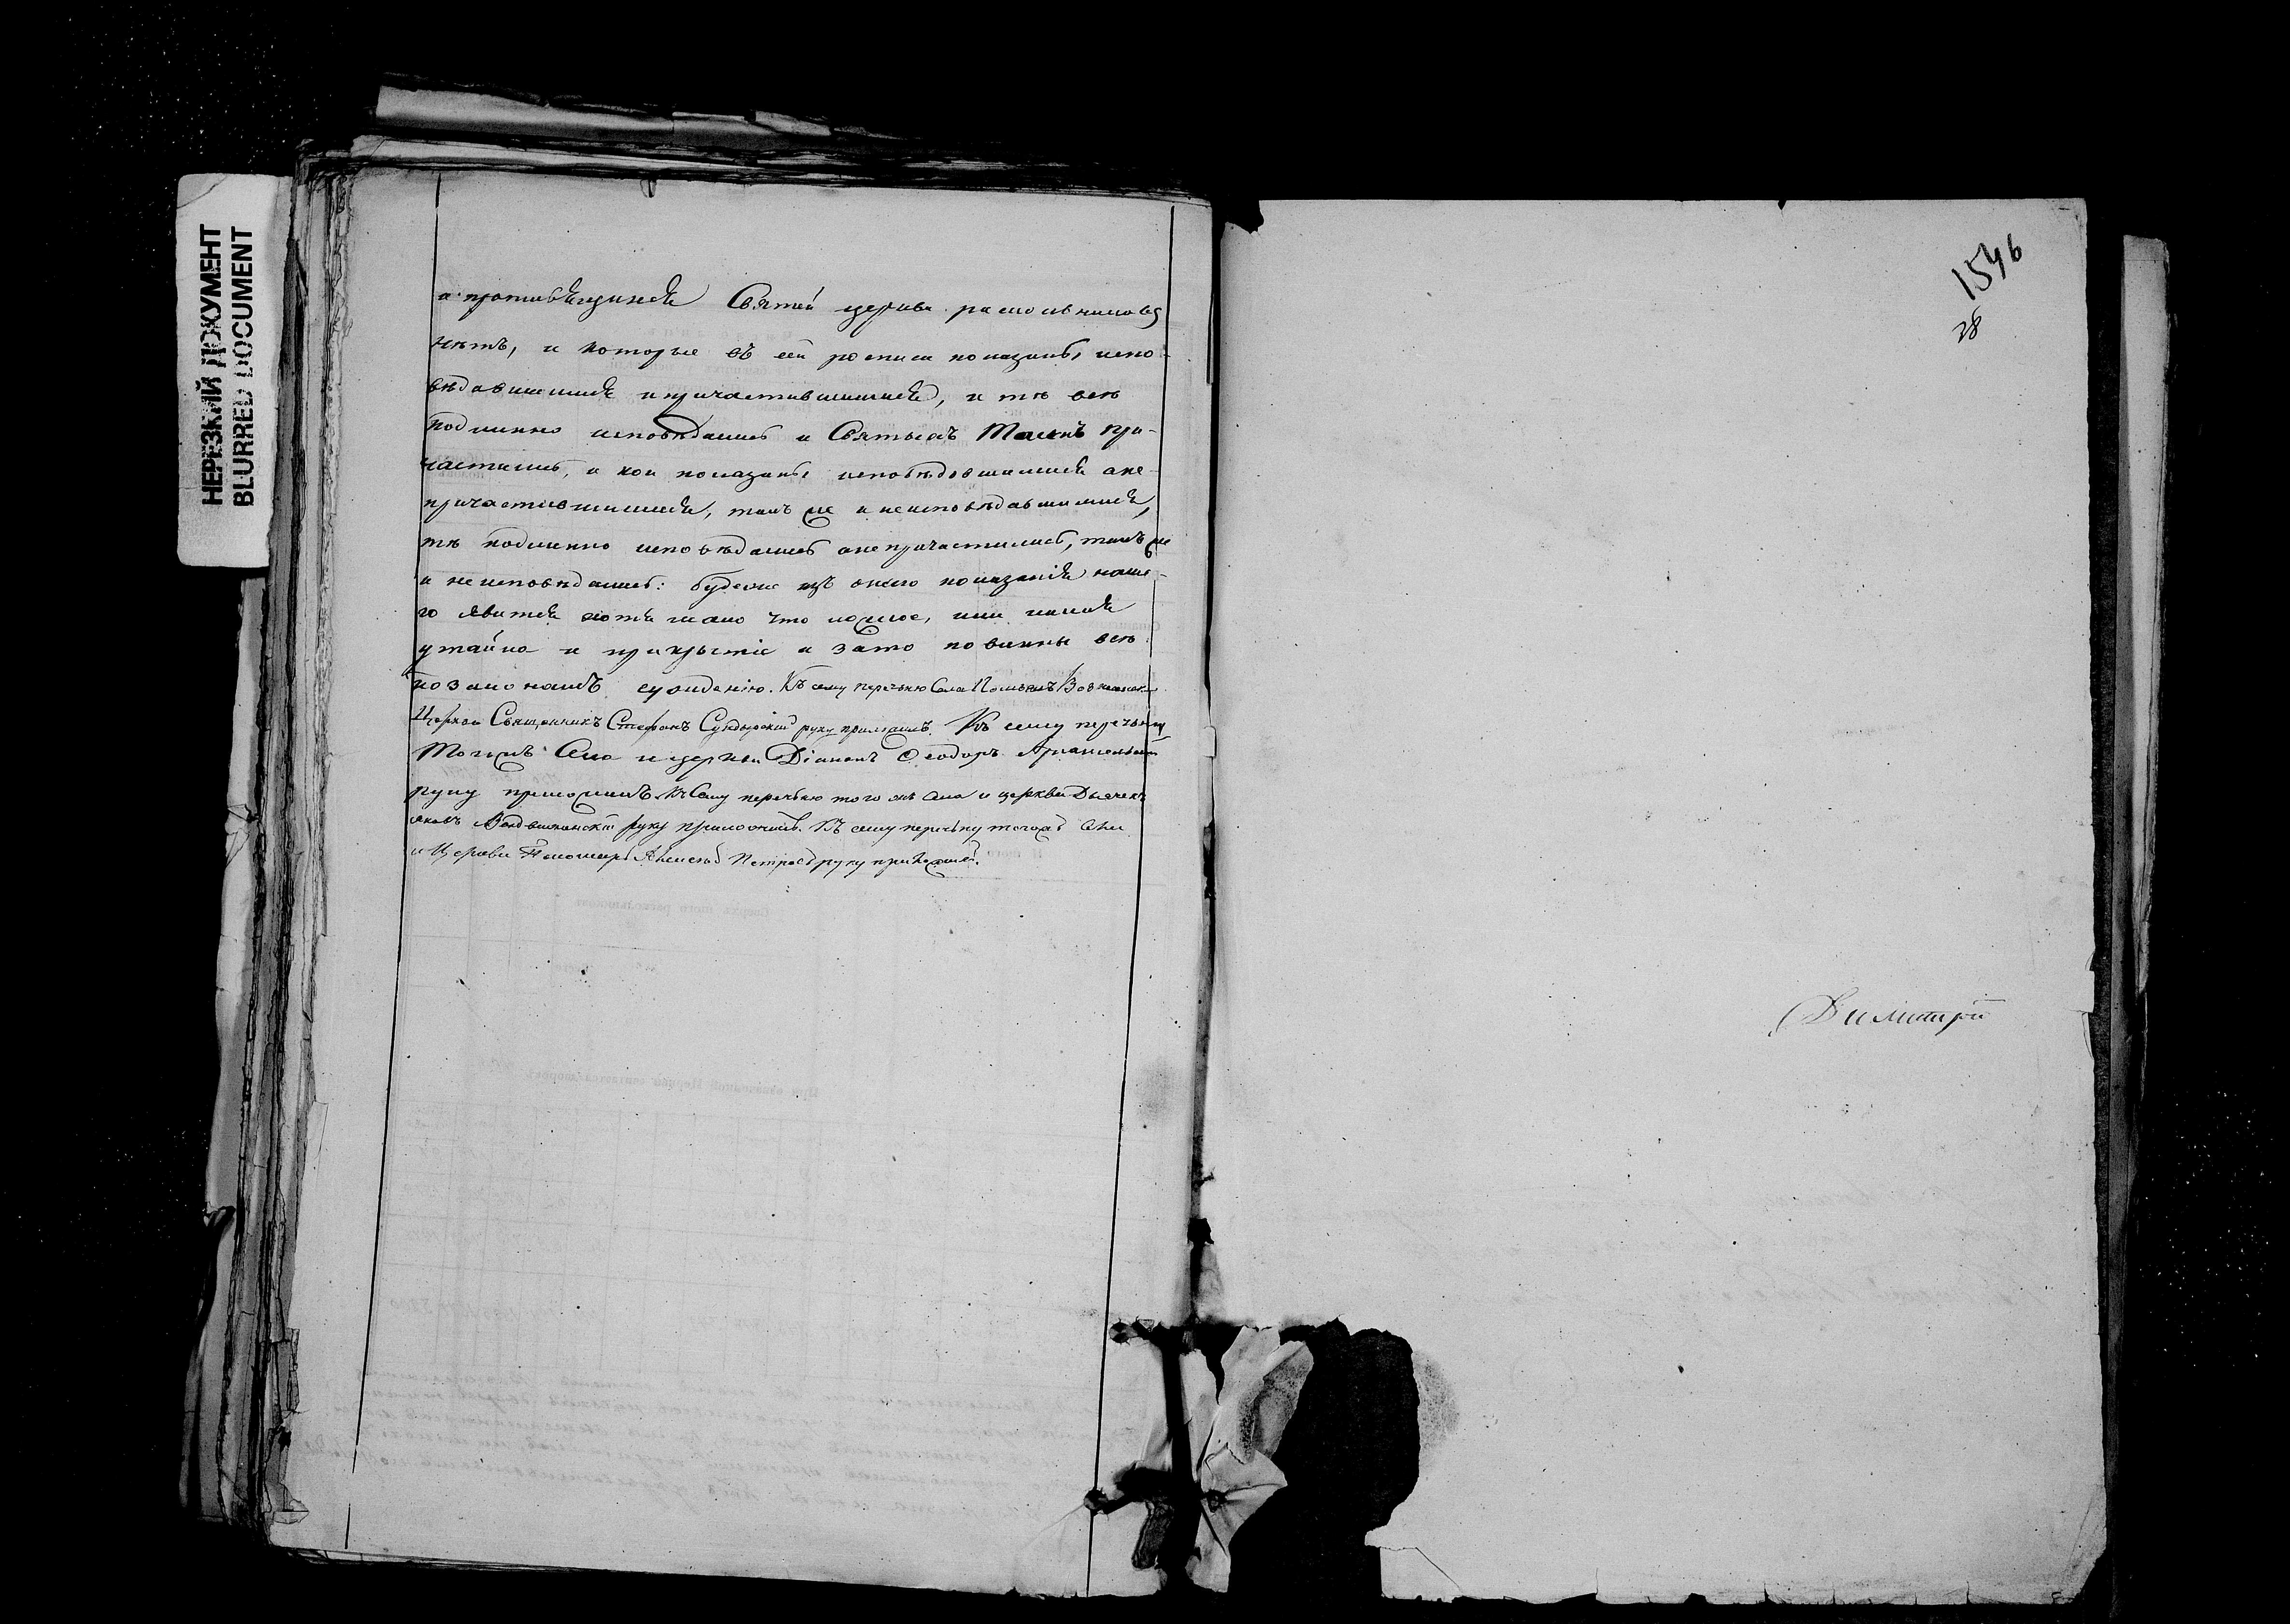 НЕРЕЗКИЙ ДОКУМЕНТ
BLURRED DOCUMENT
а противящихся Святей церкви расколниковъ
нѣтъ, и которые въ сей росписи показаны испо-
вѣдавшимися и причастившимися, и тѣ всѣ
подлинно исповѣдались и Святыхъ Таинъ при-
частились, и кои показаны исповѣдовшимися а не-
причастившимися, такъ же и неисповѣдавшимися,
тѣ подлинно исповѣдались а непричастились, такъ же
и неисповѣдались: будеже изъ онаго показанія наше-
го явится хотя мало что ложное, или какая
утайка и прикрытіе и за то повинны всѣ
по законамъ сужденію. Къ сему перечню села
Церкви Священникъ Стефанъ Сундырскій руку приложилъ. Къ сему перечню
тогожъ села и церкви Діаконъ Ѳеодоръ Архангельскій
руку приложилъ. Къ сему перечню того жъ села и церкви Дьячекъ
Яковъ руку приложилъ. Къ сему перечню тогожъ села
и Церкви Пономарь Алексѣй Петровъ руку приложилъ.
1546
28
Димитрій